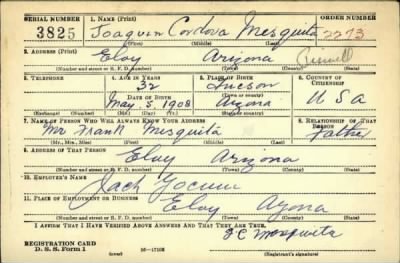 SERIAL NUMBER 1. NAME (Print) ORDER NUMBER
3825 Joaquin Cordova Mesquita 2273
(First) (Middle) (Last)
2. ADDRESS (Print)
Eloy Arizona
(Number and street or R. F. D. number) (Town) (County) (State)
3. TELEPHONE 4. AGE IN YEARS 5. PLACE OF BIRTH 6. COUNTRY OF CITIZENSHIP
32 Tucson
(Town or county)
DATE OF BIRTH
May 5, 1908 Arizona USA
(Exchange) (Number) (Mo.) (Day) (Yr.) (State or country)
7. NAME OF PERSON WHO WILL ALWAYS KNOW YOUR ADDRESS 8. RELATIONSHIP OF THAT PERSON
Mr Frank Mesquita Father
(Mr., Mrs., Miss) (First) (Middle) (Last)
9. ADDRESS OF THAT PERSON
Eloy Arizona
(Number and street or R. F. D. number) (Town) (County) (State)
10. EMPLOYER'S NAME
Jack
11. PLACE OF EMPLOYMENT OR BUSINESS
Eloy
(Number and street or R. F. D. number) (Town) (County) (State)
I AFFIRM THAT I HAVE VERIFIED ABOVE ANSWERS AND THAT THEY ARE TRUE.
J C Mesquita
REGISTRATION CARD
D. S. S. Form 1 (over) (Registrant's signature)